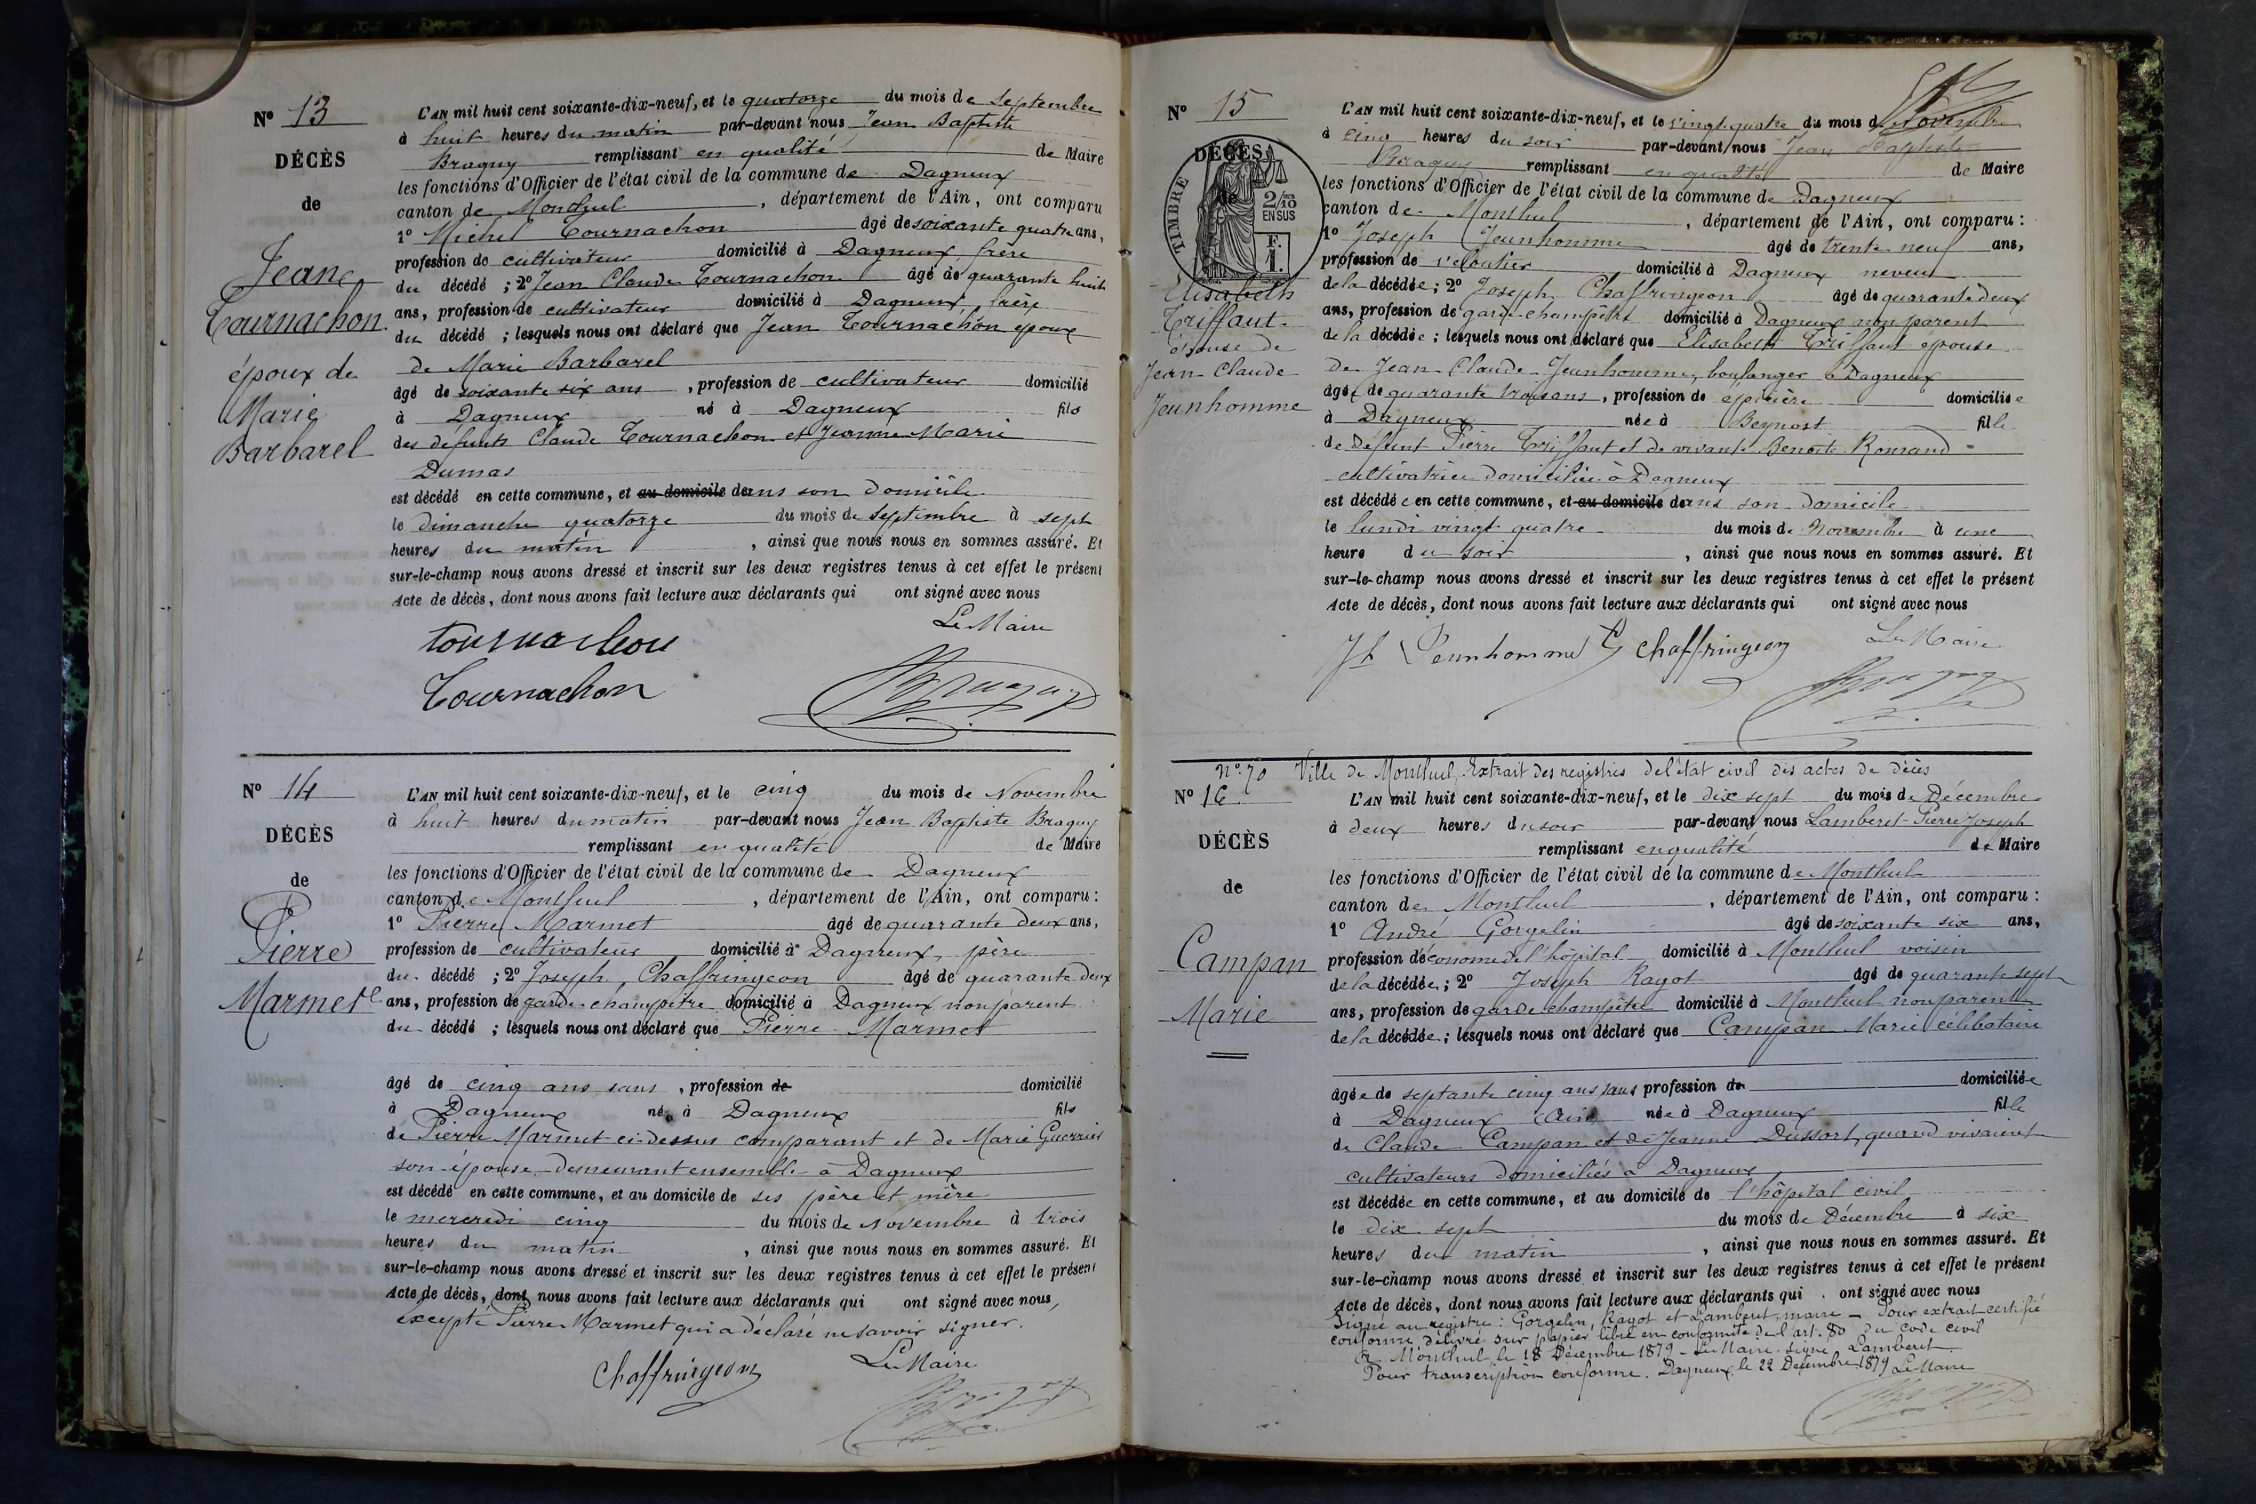 N° 13
DÉCÈS
de
Jean
Tournachon
époux de
Marie
Barbarel
L'AN mil huit cent soixante-dix-neuf, et le quatorze du mois de Septembre
à huit heures du matin par-devant nous Jean Baptiste
Braguy remplissant en qualité de Maire
les fonctions d'Officier de l'état civil de la commune de Dagneux
canton de Montluel, département de l'Ain, ont comparu
1° Michel Tournachon âgé de soixante quatre ans,
profession de cultivateur domicilié à Dagneux, frère
du décédé ; 2° Jean Claude Tournachon âgé de quarante huit
ans, profession de cultivateur domicilié à Dagneux, frère
du décédé ; lesquels nous ont déclaré que Jean Tournachon époux
de Marie Barbarel
âgé de soixante six ans, profession de cultivateur domicilié
à Dagneux né à Dagneux fils
des défunts Claude Tournachon et Jeanne Marie
Dumas
est décédé en cette commune, et au domicile dans son domicile
le dimanche quatorze du mois de septembre à sept
heures du matin, ainsi que nous nous en sommes assuré. Et
sur-le-champ nous avons dressé et inscrit sur les deux registres tenus à cet effet le présent
Acte de décès, dont nous avons fait lecture aux déclarants qui ont signé avec nous
Le Maire
tournachon
Tournachon
Braguy
N° 14
DÉCÈS
de
Pierre
Marmet
L'AN mil huit cent soixante-dix-neuf, et le cinq du mois de Novembre
à huit heures du matin par-devant nous Jean Baptiste Braguy
remplissant en qualité de Maire
les fonctions d'Officier de l'état civil de la commune de Dagneux
canton de Montluel, département de l'Ain, ont comparu :
1° Pierre Marmet âgé de quarante deux ans,
profession de cultivateur domicilié à Dagneux, père
du décédé ; 2° Joseph Chaffringeon âgé de quarante deux
ans, profession de garde-champêtre domicilié à Dagneux non parent
du décédé ; lesquels nous ont déclaré que Pierre Marmet
âgé de cinq ans sans, profession de domicilié
à Dagneux né à Dagneux fils
de Pierre Marmet ci-dessus comparant et de Marie Guerrier
son épouse demeurant ensemble à Dagneux
est décédé en cette commune, et au domicile de ses père et mère
le mercredi cinq du mois de Novembre à trois
heures du matin, ainsi que nous nous en sommes assuré. Et
sur-le-champ nous avons dressé et inscrit sur les deux registres tenus à cet effet le présent
Acte de décès, dont nous avons fait lecture aux déclarants qui ont signé avec nous,
excepté Pierre Marmet qui a déclaré ne savoir signer.
Le Maire
Chaffringeon
Braguy
N° 15
DÉCÈS
de
TIMBRE
2/10
EN SUS
F.
1.
Elisabeth
Triffaut
épouse de
Jean-Claude
Jeunhomme
L'AN mil huit cent soixante-dix-neuf, et le vingt quatre du mois de Novembre
à cinq heures du soir par-devant nous Jean Baptiste
Braguy remplissant en qualité de Maire
les fonctions d'Officier de l'état civil de la commune de Dagneux
canton de Montluel, département de l'Ain, ont comparu :
1° Joseph Jeunhomme âgé de trente neuf ans,
profession de domicilié à Dagneux neveu
de la décédée ; 2° Joseph Chaffringeon âgé de quarante deux
ans, profession de garde-champêtre domicilié à Dagneux non parent
de la décédée ; lesquels nous ont déclaré que Elisabeth Triffaut épouse
de Jean-Claude Jeunhomme, boulanger à Dagneux
âgée de quarante trois ans, profession de épicière domiciliée
à Dagneux née à Beynost fille
de défunt Pierre Triffaut et de vivante Benoîte Romand
cultivatrice domiciliée à Dagneux
est décédée en cette commune, et au domicile dans son domicile
le lundi vingt quatre du mois de Novembre à une
heure du soir, ainsi que nous nous en sommes assuré. Et
sur-le-champ nous avons dressé et inscrit sur les deux registres tenus à cet effet le présent
Acte de décès, dont nous avons fait lecture aux déclarants qui ont signé avec nous
Le Maire
Jh Jeunhomme Chaffringeon
Braguy
N° 70 Ville de Montluel, Extrait des registres de l'état civil des actes de décès
N° 16
DÉCÈS
de
Campan
Marie
L'AN mil huit cent soixante-dix-neuf, et le dix sept du mois de Décembre
à deux heures du soir par-devant nous Lamberet Pierre Joseph
remplissant en qualité de Maire
les fonctions d'Officier de l'état civil de la commune de Montluel
canton de Montluel, département de l'Ain, ont comparu :
1° André Gorgelin âgé de soixante six ans,
profession d'économe de l'hôpital domicilié à Montluel voisin
de la décédée ; 2° Joseph Ragot âgé de quarante sept
ans, profession de garde champêtre domicilié à Montluel non parent
de la décédée ; lesquels nous ont déclaré que Campan Marie célibataire
âgée de septante cinq ans sans profession de domiciliée
à Dagneux (Ain) née à Dagneux fille
de Claude Campan et de Jeanne Dussort, quand vivaient
cultivateurs domiciliés à Dagneux
est décédée en cette commune, et au domicile de l'hôpital civil
le dix sept du mois de Décembre à six
heures du matin, ainsi que nous nous en sommes assuré. Et
sur-le-champ nous avons dressé et inscrit sur les deux registres tenus à cet effet le présent
Acte de décès, dont nous avons fait lecture aux déclarants qui ont signé avec nous
Signé au registre : Gorgelin, Ragot et Lamberet, maire — Pour extrait certifié
conforme délivré sur papier libre en conformité de l'art. 80 du code civil
A Montluel, le 18 Décembre 1879 - Le Maire signé Lamberet.
Pour transcription conforme. Dagneux, le 22 Décembre 1879 Le Maire
Braguy